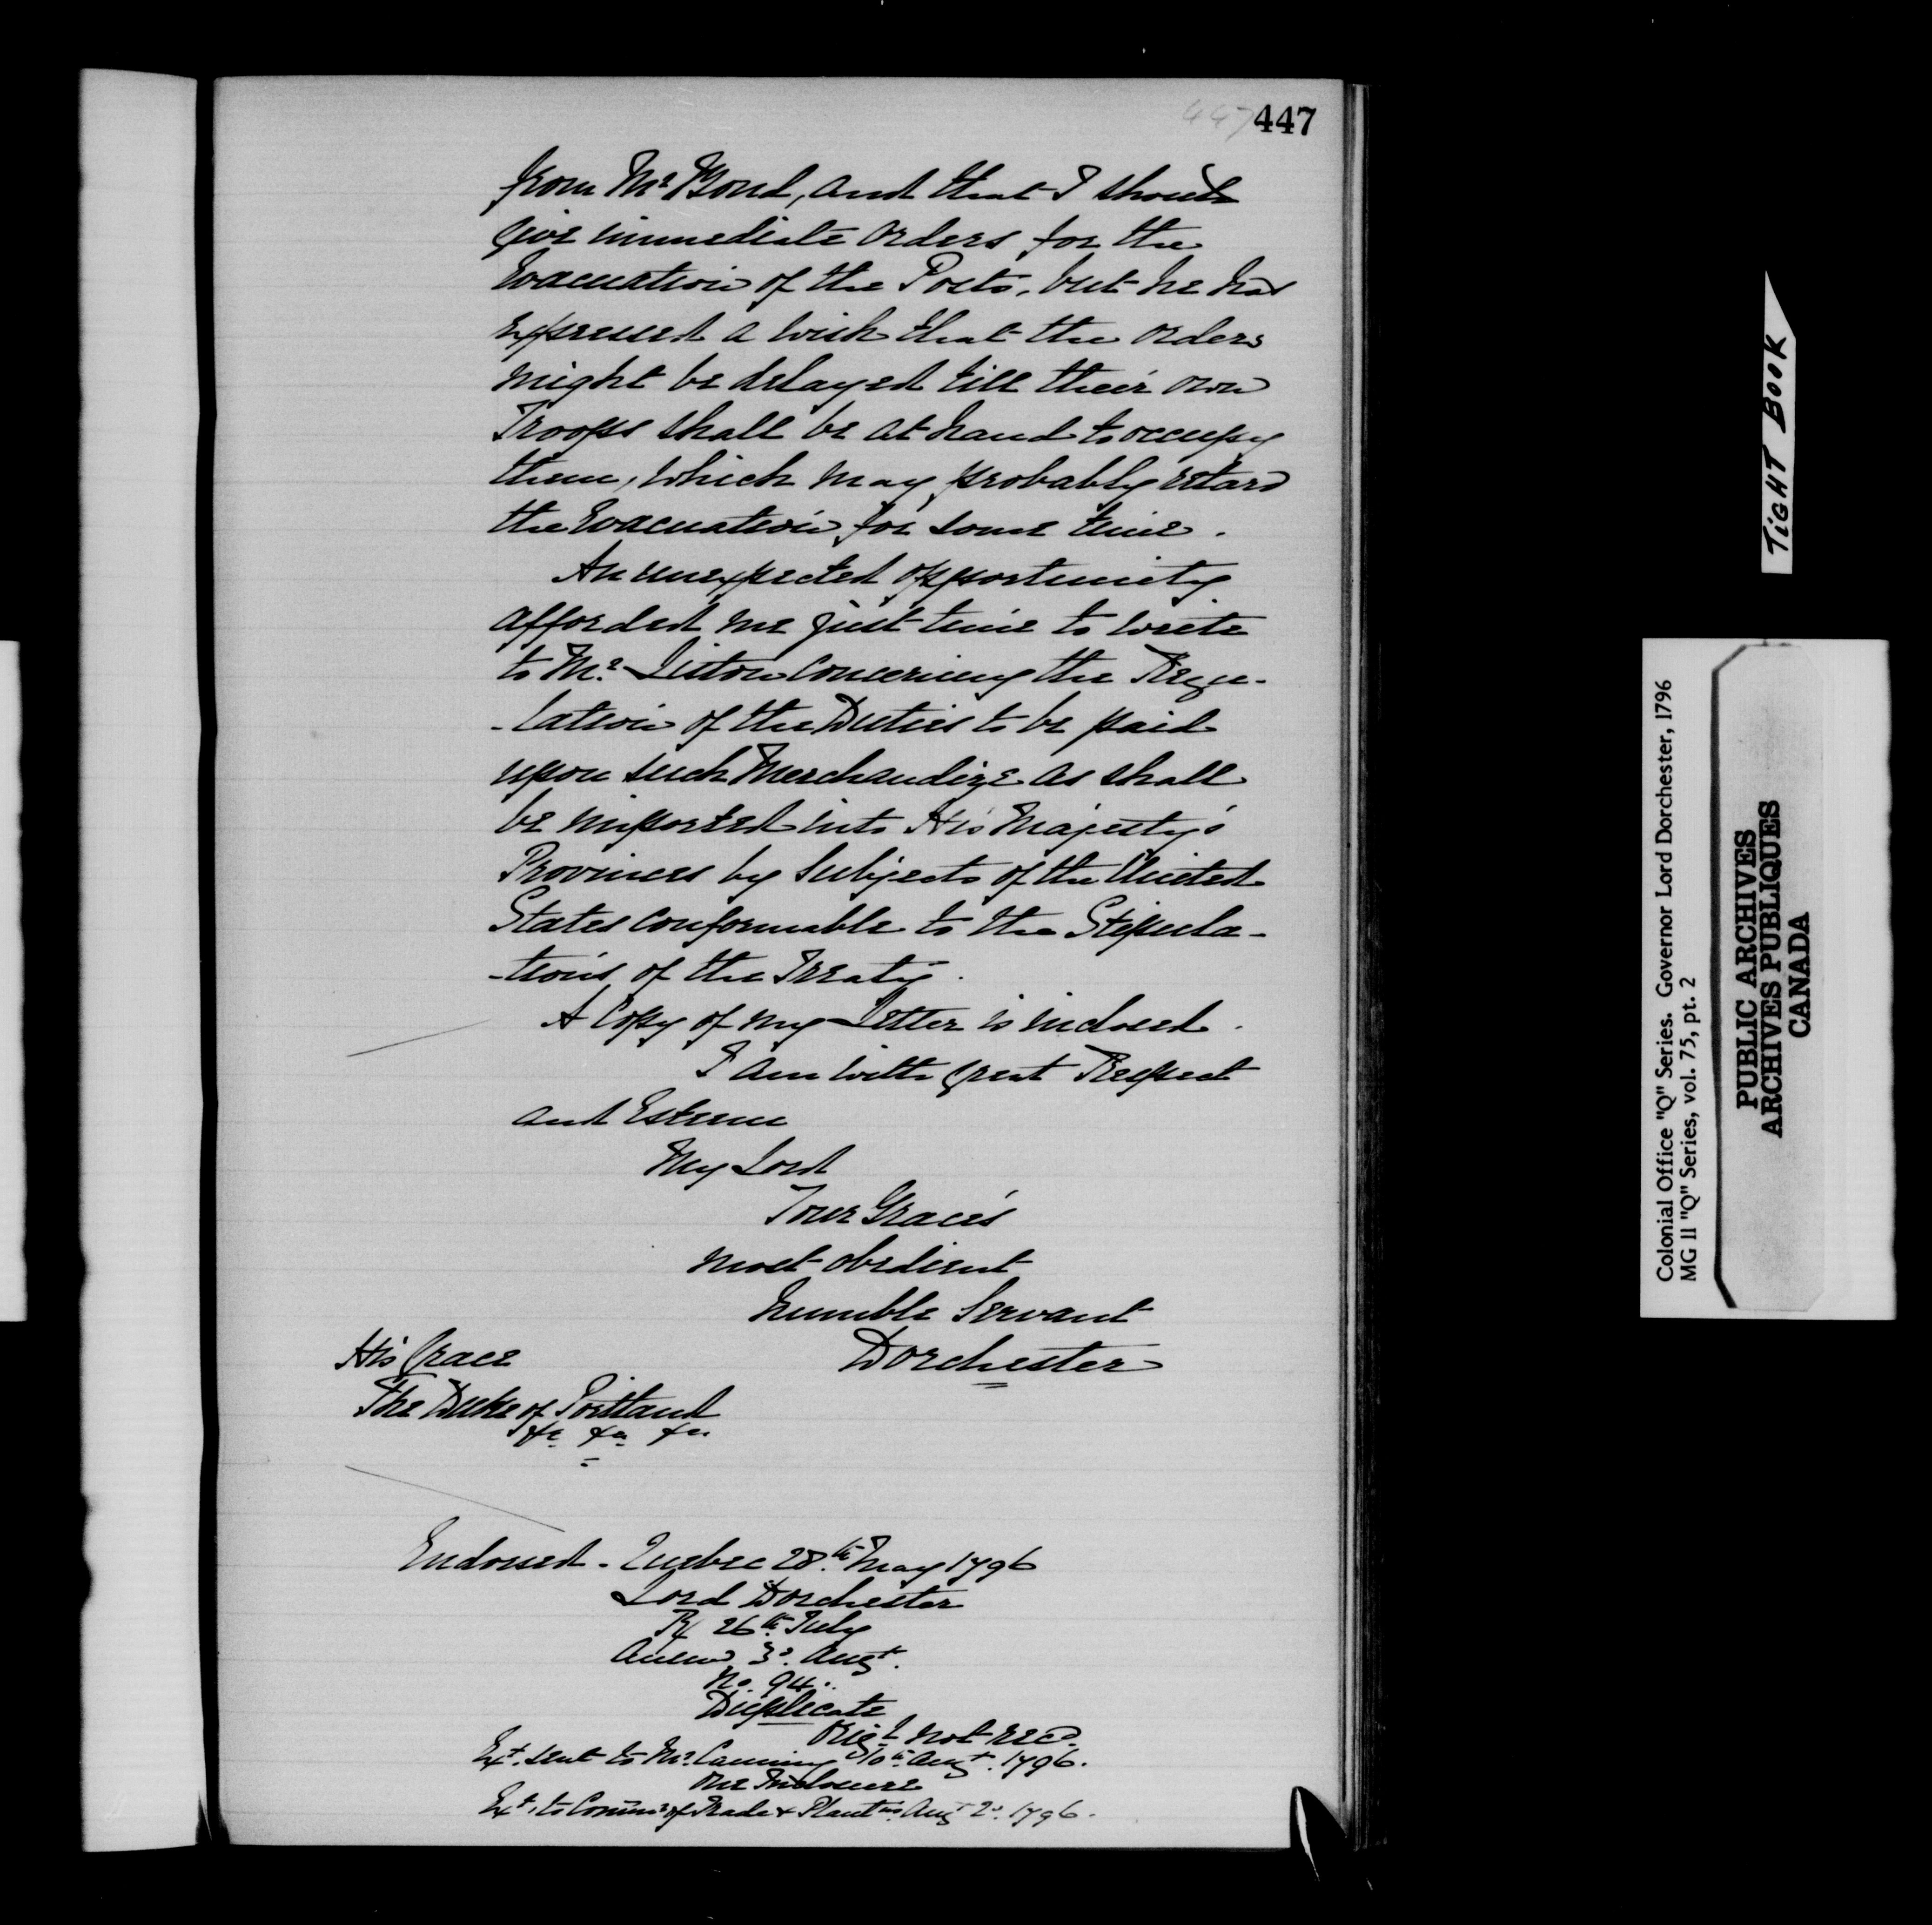 447 447
from Mr Bond, and that I should
give immediate orders for the
Evacuation of the Posts, but he has
expressed a wish that the orders
might be delayed till their own
Troops shall be at hand to occupy
them, which may probably retard
the Evacuation for some time.
An unexpected opportunity
afforded me just time to write
to Mr. Liston concerning the Regu-
-lation of the Duties to be paid
upon such Merchandize as shall
be imported into His Majesty's
Provinces by Subjects of the United
States conformable to the Stipula-
-tions of the Treaty.
A Copy of my Letter is inclosed.
I am with great Respect
and Esteem
My Lord
Your Grace's
most obedient
humble Servant
Dorchester
His Grace
The Duke of Portland
&c. &c. &c.
Endorsed - Quebec 28th May 1796
Lord Dorchester
R/ 26th July
Answd 3d. Augt.
No. 94.
Duplicate
Origl not recd.
Ext. sent to Mr. Canning 10th Augt. 1796.
One Inclosure
Ext. to Comms. of Trade & Plantns. Augt 2d. 1796.
TIGHT BOOK
Colonial Office "Q" Series. Governor Lord Dorchester, 1796
MG 11 "Q" Series, vol. 75, pt. 2
PUBLIC ARCHIVES
ARCHIVES PUBLIQUES
CANADA